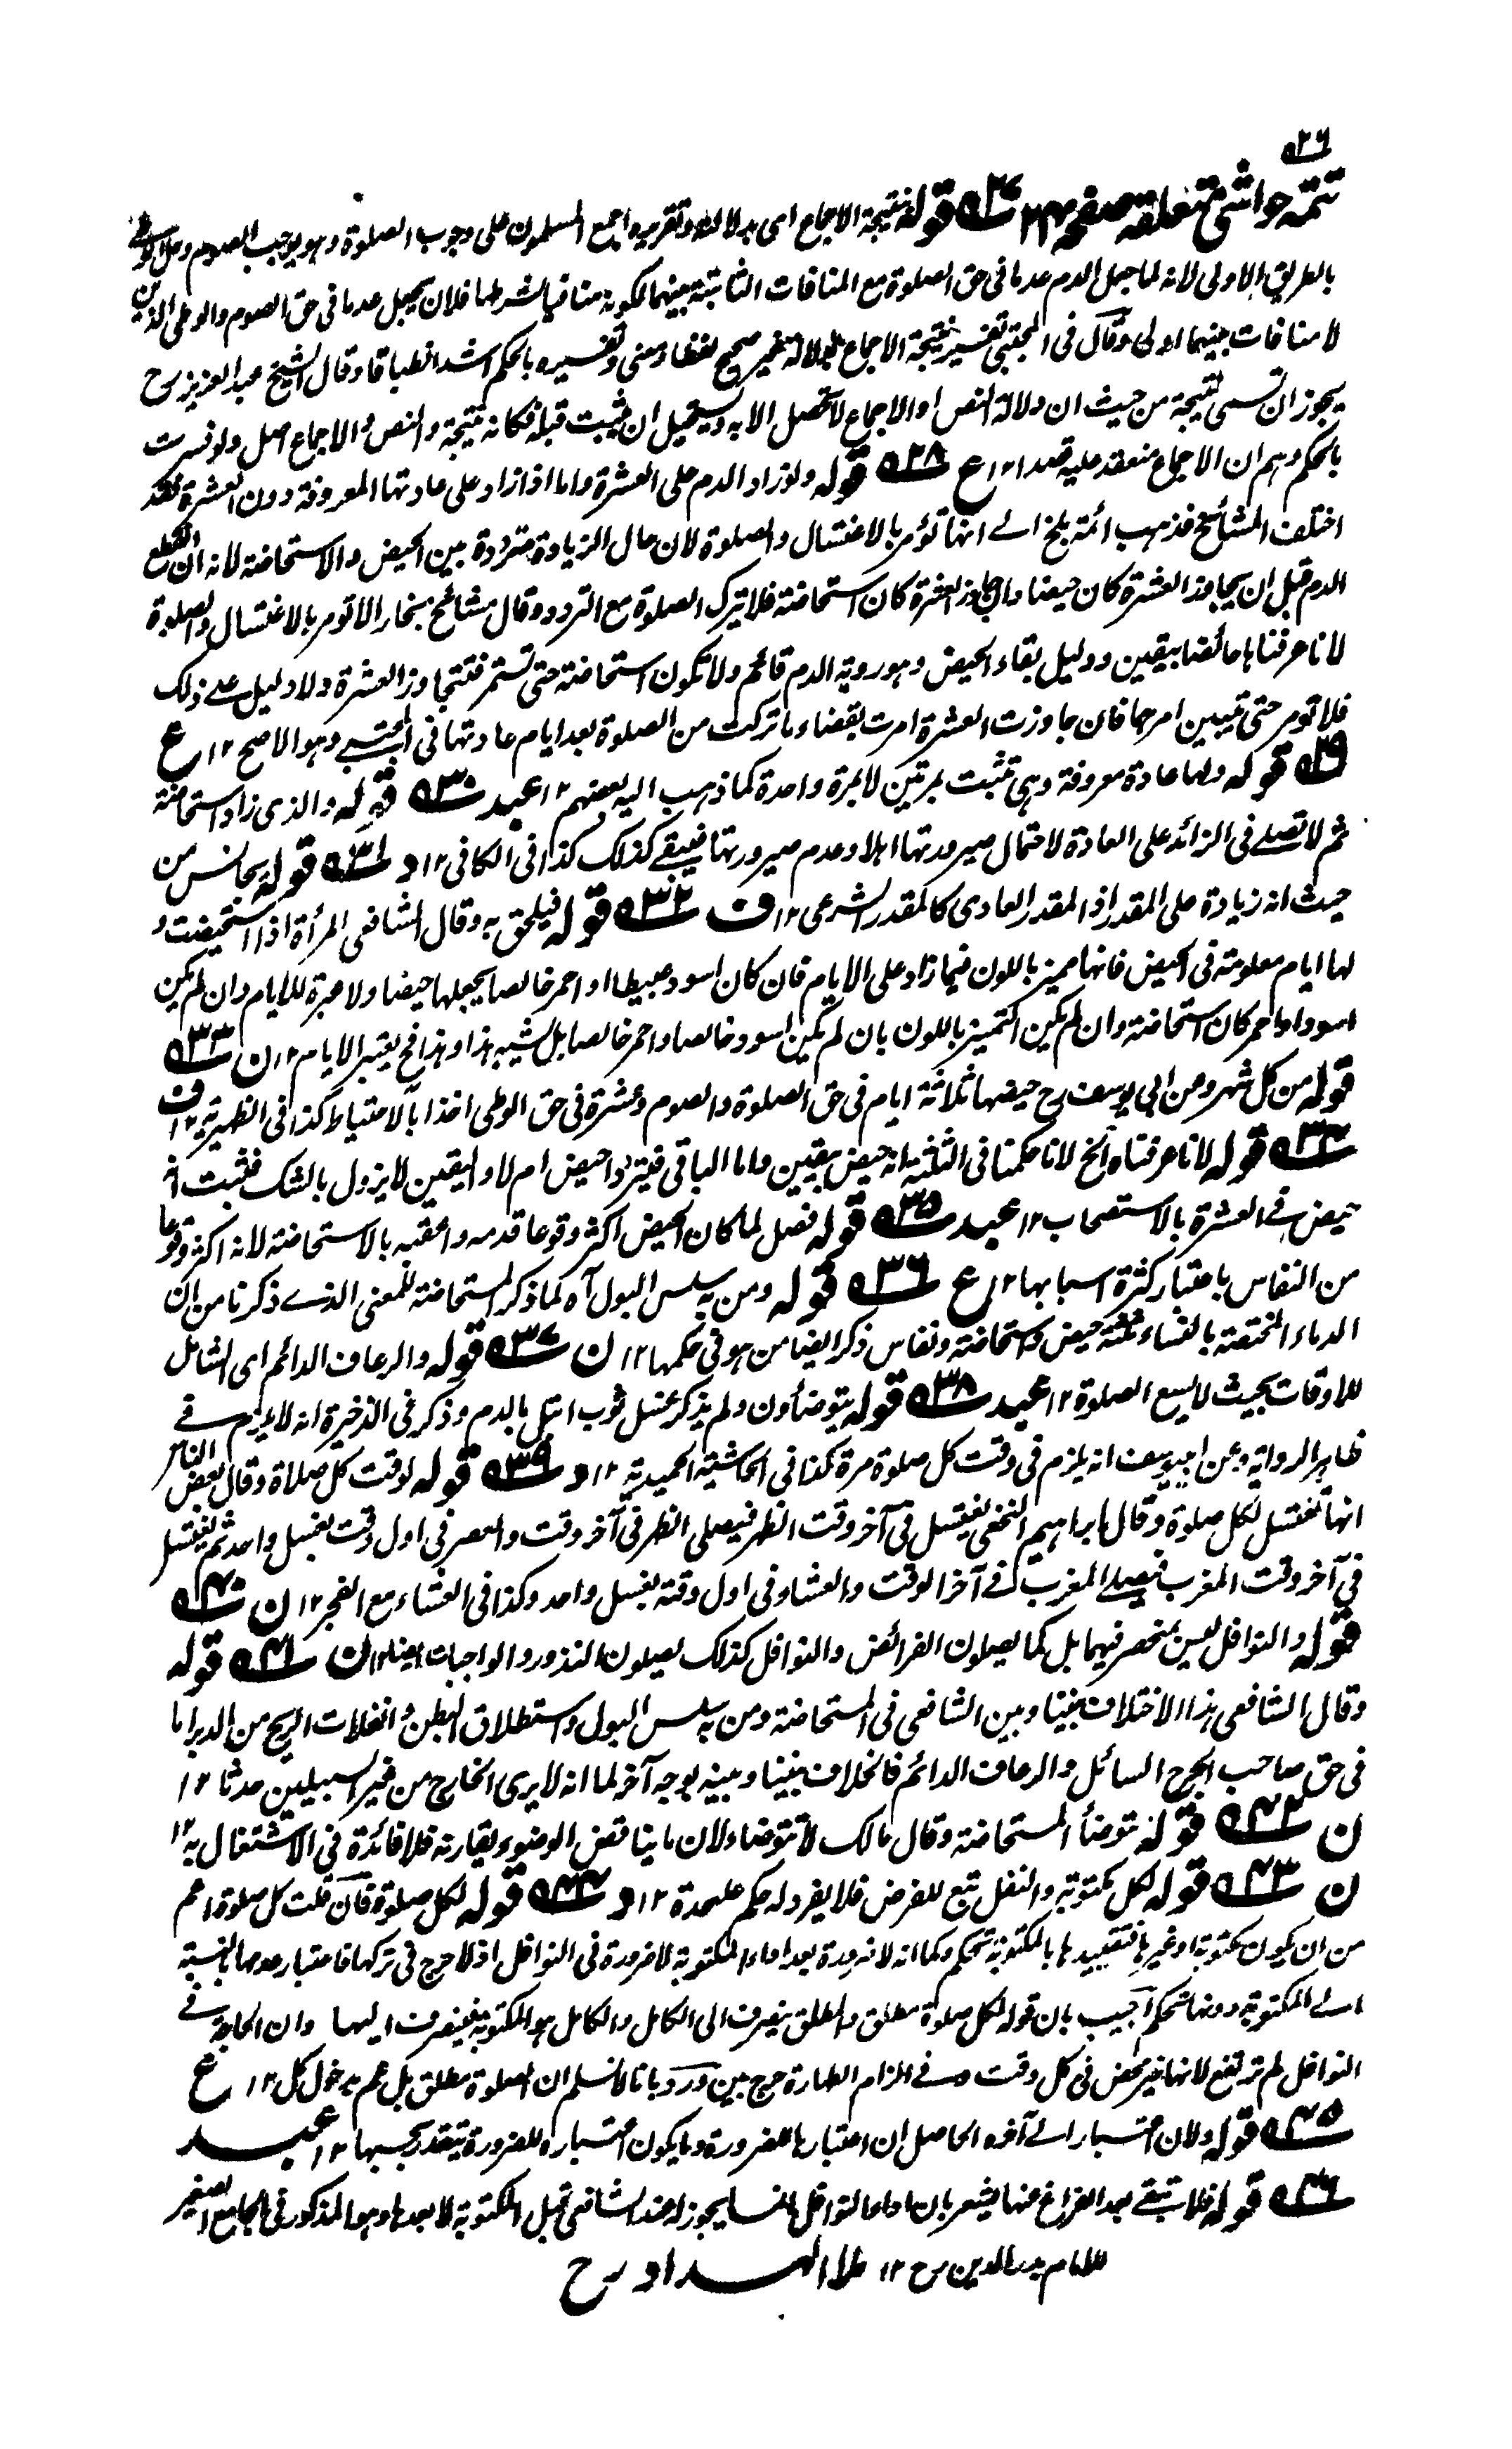 ٥٢٦
تتمہ حواشی متعلقہ صفحہ ٢٤ ٥٢٧ قولہ نتیجة الاجماع ای بدلالته وتقریره اجمع المسلمون علی وجوب الصلوة وهو یوجب الصوم وحل الوطی
بالطریق الاولی لانه لما جعل الدم عدما فی حق الصلوة مع المنافات الثابتة بینهما لکونه منافیا لشرطها فلان یجعل عدما فی حق الصوم والوطی الذین
لا منافات بینهما اولی وقال فی المجتبی تفسیر نتیجة الاجماع بالدلالة غیر صحیح لفظا ومعنی وتفسیره بالحکم اشد انطباقا وقال الشیخ عبد العزیز رح
یجوز ان تسمی نتیجة من حیث ان دلالة النص او الاجماع لا تحصل الا به ویستحیل ان یثبت قبله فکانه نتیجة والنص والاجماع اصل ولو فسرت
بالحکم وهم ان الاجماع منعقد علیه قصدا ١٢ ع ٥٢٨ قوله ولو زاد الدم علی العشرة واما اذا زاد علی عادتها المعروفة دون العشرة فقد
اختلف المشائخ فذهب ائمة بلخ الے انها تؤمر بالاغتسال والصلوة لان حال الزیادة مترددة بین الحیض والاستحاضة لانه ان انقطع
الدم قبل ان یجاوز العشرة کان حیضا وان جاوز العشرة کان استحاضة فلا تترک الصلوة مع التردد وقال مشائخ بخارا لا تؤمر بالاغتسال والصلوة
لانا عرفناها حائضا بیقین ودلیل بقاء الحیض وهو رویة الدم قائم ولا تکون استحاضة حتی تستمر فتتجاوز العشرة ولا دلیل علے ذلک
فلا تومر حتی تبیین امرها فان جاوزت العشرة امرت بقضاء ما ترکت من الصلوة بعد ایام عادتها فی المجتبے وهو الاصح ١٢ ع
٥٢٩ قوله ولها عادة معروفة وهی تثبت بمرتین لا بمرة واحدة کما ذهب الیه بعضهم ١٢ عبد ٥٣٠ قوله والذی زاد استحاضة
ثم لا تصلے فی الزائد علی العادة لاحتمال صیرورتها اهلا وعدم صیرورتها فیبقے کذلک کذا فی الکافی ١٢ د ٥٣١ قوله یجانس من
حیث انه زیادة علی المقدر اذ المقدر العادی کالمقدر الشرعی ١٢ ف ٥٣٢ قوله فیلحق به وقال الشافعی المرأة اذا استحیضت و
لها ایام معلومة فی الحیض فانها تمیز باللون فیما زاد علی الایام فان کان اسود عبیطا او احمر خالصا یجعلها حیضا ولا عبرة للایام وان لم یکن
اسود او احمر کان استحاضة وان لم یکن التمیز باللون بان لم یکن اسود خالصا واحمر خالصا بل یشبه هذا وهذا فح یعتبر الایام ١٢ ن ٥٣٣
قوله من کل شهر وعن ابی یوسف رح حیضها ثلاثة ایام فی حق الصلوة والصوم وعشرة فی حق الوطی اخذا بالاحتیاط کذا فی الظهیریة ١٢ ف
٥٣٤ قوله لانا عرفناه الخ لانا حکمنا فی الثلثة انه حیض بیقین واما الباقی فیتردد احیض ام لا والیقین لا یزول بالشک فثبت انه
حیض فے العشرة بالاستصحاب ١٢ عبد ٥٣٥ قوله فصل لما کان الحیض اکثر وقوعا قدمه واعقبه بالاستحاضة لانه اکثر وقوعا
من النفاس باعتبار کثرة اسبابها ١٢ ع ٥٣٦ قوله ومن به سلس البول آه کما ذکر المستحاضة للمعنی الذے ذکرنا من ان
الدماء المختصة بالنساء ثلثة حیض واستحاضة ونفاس ذکر ایضا من هو فی حکمها ١٢ ن ٥٣٧ قوله والرعاف الدائم ای الشامل
للاوقات بحیث لا یسع الصلوة ١٢ عبد ٥٣٨ قوله یتوضأون ولم یذکر غسل ثوب ابتل بالدم وذکر فی الذخیرة انه لا یلزم فے
ظاهر الروایة وعن ابی یوسف انه یلزم فی وقت کل صلوة مرة کذا فی الحاشیة الحمیدیة ١٢ د ٥٣٩ قوله لوقت کل صلاة وقال بعض الناس
انها تغتسل لکل صلوة وقال ابراهیم النخعی یغتسل فی آخر وقت الظهر فیصلی الظهر فی آخر وقت والعصر فی اول وقت بغسل واحد ثم یغتسل
فی آخر وقت المغرب فیصلے المغرب فے آخر الوقت والعشاء فی اول وقته بغسل واحد وکذا فی العشاء مع الفجر ١٢ ن ٥٤٠
قوله والنوافل لیس بمنحصر فیهما بل کما یصلون الفرائض والنوافل کذلک یصلون النذور والواجبات ایضا ١٢ ن ٥٤١ قوله
وقال الشافعی هذا الاختلاف بیننا وبین الشافعی فی المستحاضة ومن به سلس البول واستطلاق البطن وانفلات الریح من الدبر اما
فی حق صاحب الجرح السائل والرعاف الدائم فالخلاف بیننا وبینه بوجه آخر لما انه لا یری الخارج من غیر السبیلین حدثا ١٢
ن ٥٤٢ قوله توضأ المستحاضة وقال مالک لا تتوضأ ولان ما ینا قض الوضوء یقارنه فلا فائدة فی الاشتغال به ١٢
ن ٥٤٣ قوله لکل مکتوبة والنفل تبع للفرض فلا یفرد له حکم علیحدة ١٢ د ٥٤٤ قوله لکل صلوة فان قلت کل صلوة اعم
من ان یکون مکتوبة او غیرها فتقییدها بالمکتوبة تحکم وکما انه لا ضرورة بعد اداء المکتوبة لا ضرورة فی النوافل اذ لا حرج فی ترکها فاعتبار عدمها بالنسبة
الے المکتوبة دونها تحکم اجیب بان قوله لکل صلوة مطلق والمطلق ینصرف الی الکامل والکامل هو المکتوبة فینصرف الیها وان الحاجة فے
النوافل لم ترتفع لانها خیر محض فی کل وقت وفے الزام الطهارة حرج بین ورد بانا لا نسلم ان الصلوة مطلق بل عم بدخول کل ١٢ ع
٥٤٥ قوله ولان اعتبار الے آخره الحاصل ان اعتبارها للضرورة وما یکون اعتباره للضرورة یتقدر بحسبها ١٢ عبد
٥٤٦ قوله فلا تبقے بعد الفراغ عنها یشعر بان اداء النوافل انما یجوز له عند الشافعی قبل المکتوبة لا بعدها وهو المذکور فی الجامع الصغیر
للامام بدر الدین رح ١٢ ملا الهداد رح